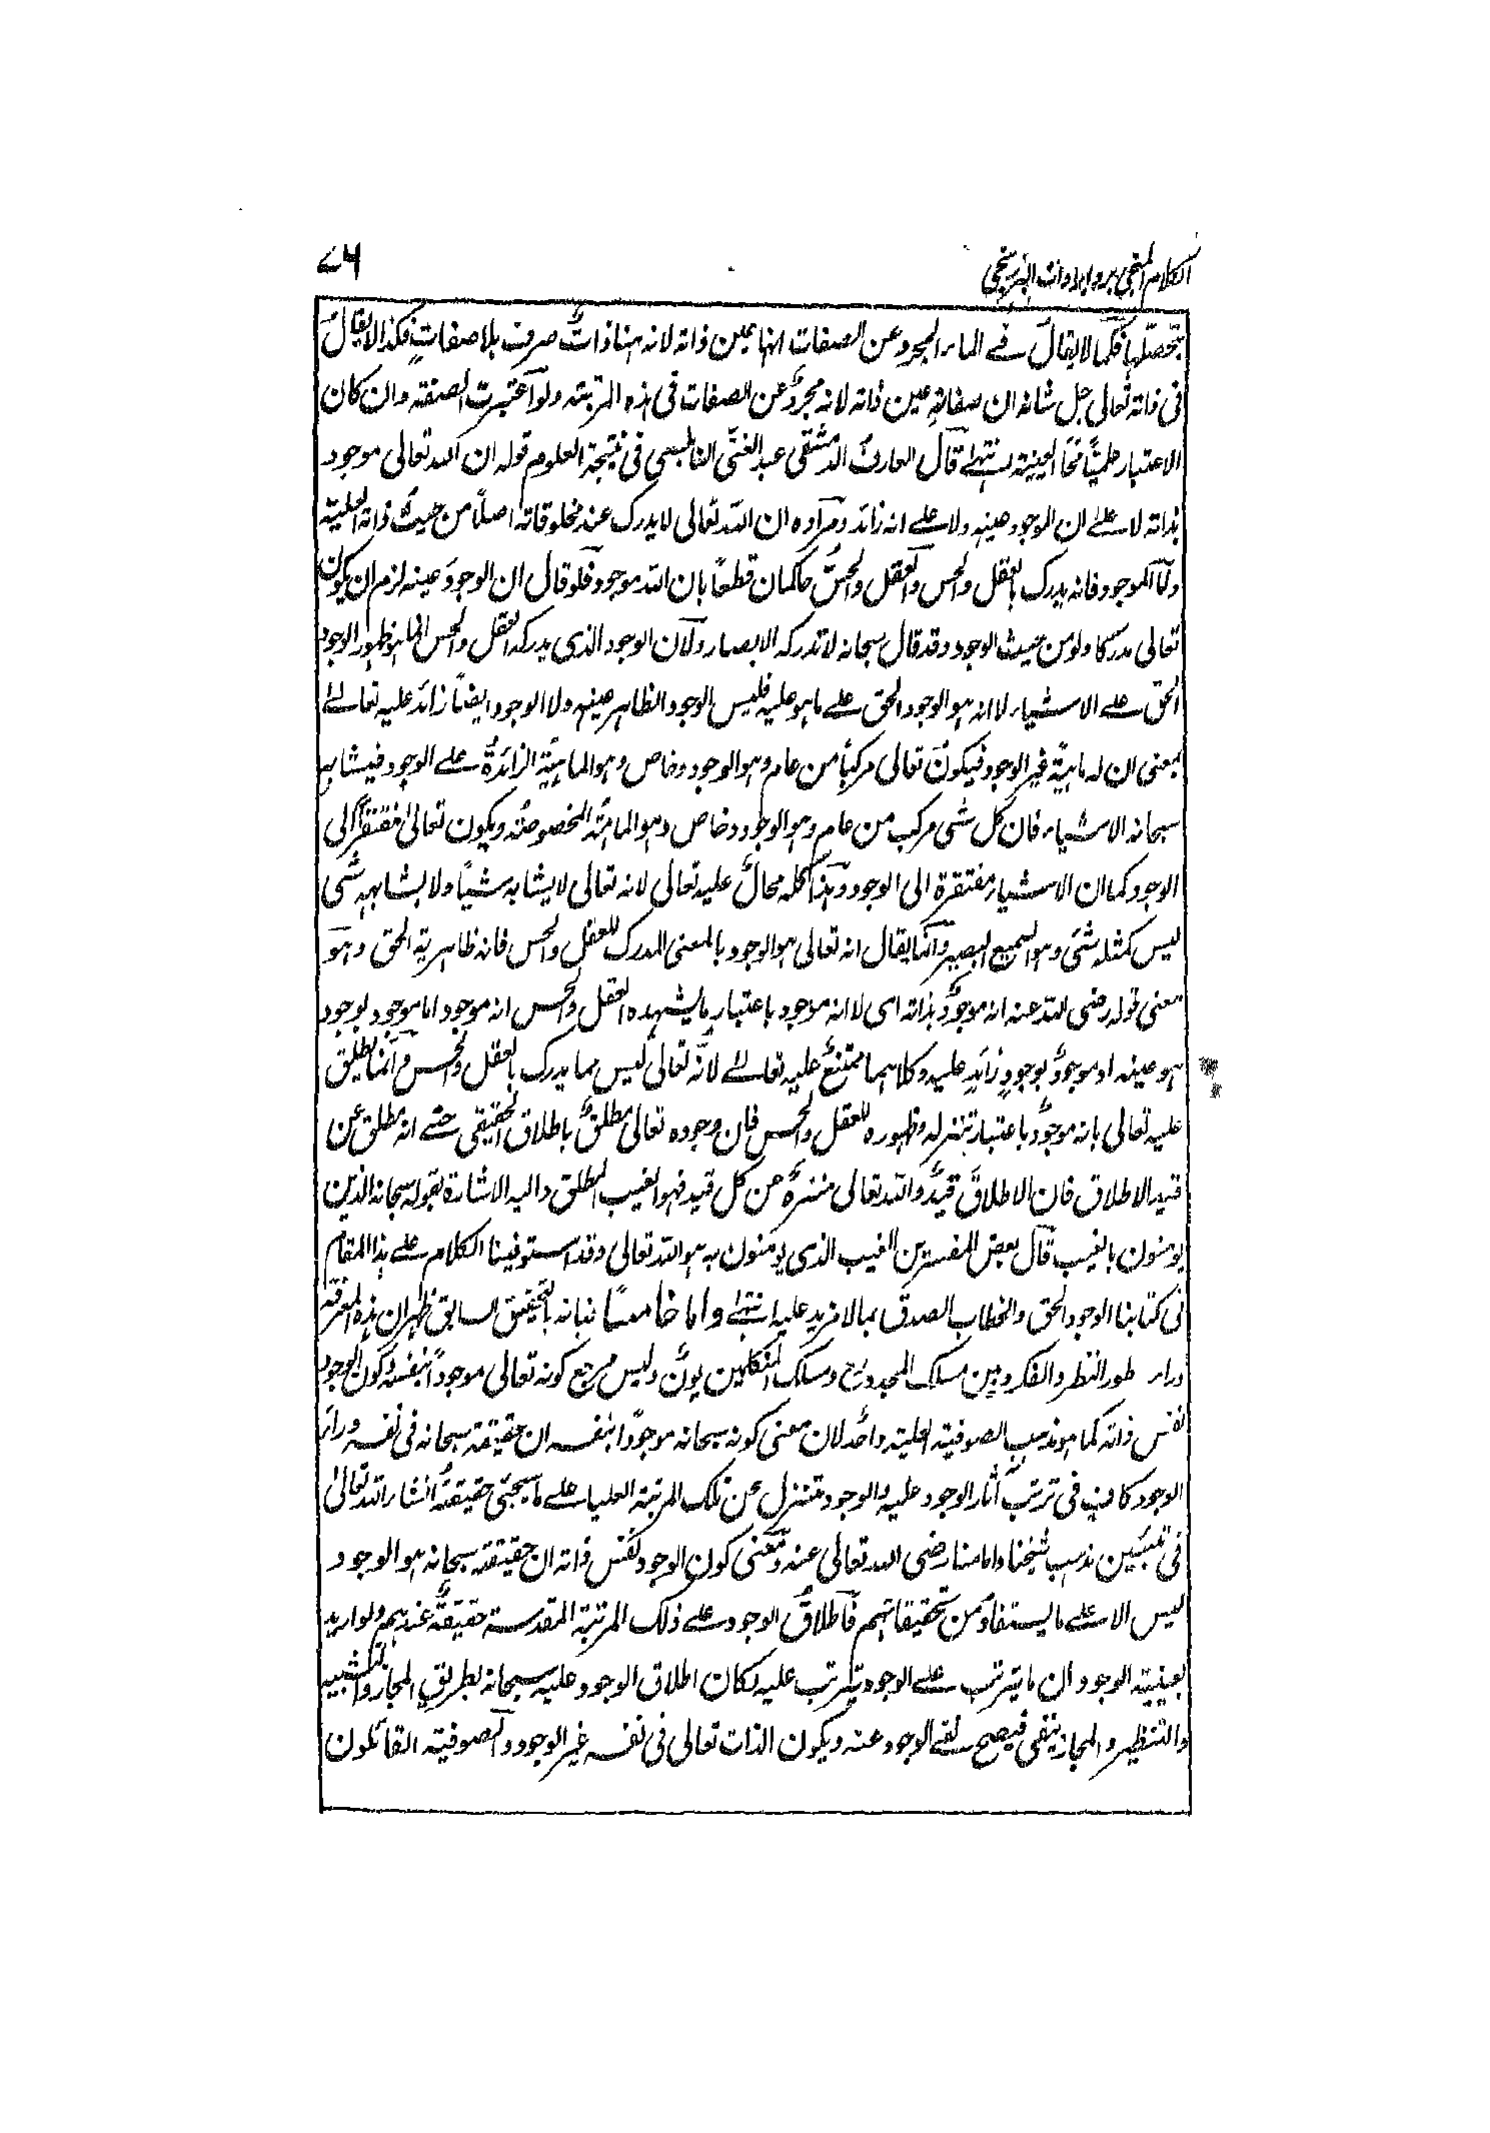 الكلام المنجي برد ايرادات البرزنجي
٧٦
بتحصلها فكما لا يقال في الماء المجرد عن الصفات انها عين ذاته لانه هنا ذات صرف بلا صفات فكذا لا يقال
في ذاته تعالى جل شانه ان صفاته عين ذاته لانه مجرد عن الصفات في هذه المرتبة ولو اعتبرت الصفة وان كان
الاعتبار علميًا نحا العينية انتهى قال العارف الدمشقي عبد الغني النابلسي في نتيجة العلوم قوله ان الله تعالى موجود
بذاته لا على ان الوجود عينه ولا على انه زائد ومراده ان الله تعالى لا يدرك عند مخلوقاته اصلًا من حيث ذاته العلية
واما الموجود فانه يدرك بالعقل والحس والعقل والحس حاكمان قطعًا بان الله موجود فلو قال ان الوجود عينه لزم ان يكون
تعالى مدركا ولو من حيث الوجود وقد قال سبحانه لا تدركه الابصار ولان الوجود الذي يدركه العقل والحس انما هو ظهور الوجود
الحق على الاشياء لا انه هو الوجود الحق على ما هو عليه فليس الوجود الظاهر عينه ولا الوجود ايضًا زائد عليه تعالى
بمعنى ان له ماهية غير الوجود فيكون تعالى مركبًا من عام وهو الوجود وخاص وهو الماهية الزائدة على الوجود فيشابه
سبحانه الاشياء فان كل شى مركب من عام وهو الوجود وخاص وهو الماهية المخصوصة ويكون تعالى مفتقرًا الى
الوجود كما ان الاشياء مفتقرة الى الوجود وهذا كله محال عليه تعالى لانه تعالى لا يشابه شيئًا ولا يشابهه شى
ليس كمثله شى وهو السميع البصير وانما يقال انه تعالى هو الوجود بالمعنى المدرك للعقل والحس فانه ظاهرية الحق وهو
معنى قوله رضى الله عنه انه موجود بذاته اى لا انه موجود باعتبار ما يشهده العقل والحس انه موجود اما موجود بوجود
هو عينه او موجود بوجود زائد عليه وكلاهما ممتنع عليه تعالى لانه تعالى ليس مما يدرك بالعقل والحس وانما يطلق
عليه تعالى بانه موجود باعتبار تنزله وظهوره للعقل والحس فان وجوده تعالى مطلق باطلاق الحقيقي حتى انه مطلق عن
قيد الاطلاق فان الاطلاق قيد والله تعالى منزه عن كل قيد فهو الغيب المطلق واليه الاشارة بقوله سبحانه الذين
يومنون بالغيب قال بعض المفسرين الغيب الذى يومنون به هو الله تعالى وقد استوفينا الكلام على هذا المقام
فى كتابنا الوجود الحق والخطاب الصدق بما لا مزيد عليه انتهى واما خامسًا فبانه بالتحقيق السابق ظهر ان هذه المعرفة
وراء طور النظر والفكر وبين مسلك المجدد رح ومسلك المتكلمين بون وليس مرجع كونه تعالى موجودًا بنفسه وكون الوجود
نفس ذاته كما هو مذهب الصوفية العلية واحد لان معنى كونه سبحانه موجودًا بنفسه ان حقيقة سبحانه فى نفسه وراء
الوجود كاف فى ترتب آثار الوجود عليه والوجود متنزل عن تلك المرتبة العليا على ما سيجئ حقيقته انشاء الله تعالى
فى تبيين مذهب شيخنا وامامنا رضى الله تعالى عنه ومعنى كون الوجود نفس ذاته ان حقيقته سبحانه هو الوجود
ليس الا على ما يستفاد من تحقيقاتهم فاطلاق الوجود على ذلك المرتبة المقدسة حقيقة عندهم ولو اريد
بعينية الوجود ان ما يترتب على الوجود يترتب عليه لكان اطلاق الوجود عليه سبحانه بطريق المجاز والتشبيه
والتنظير والمجاز ينفى فيصح نفى الوجود عنه ويكون الذات تعالى فى نفسه غير الوجود والصوفية القائلون